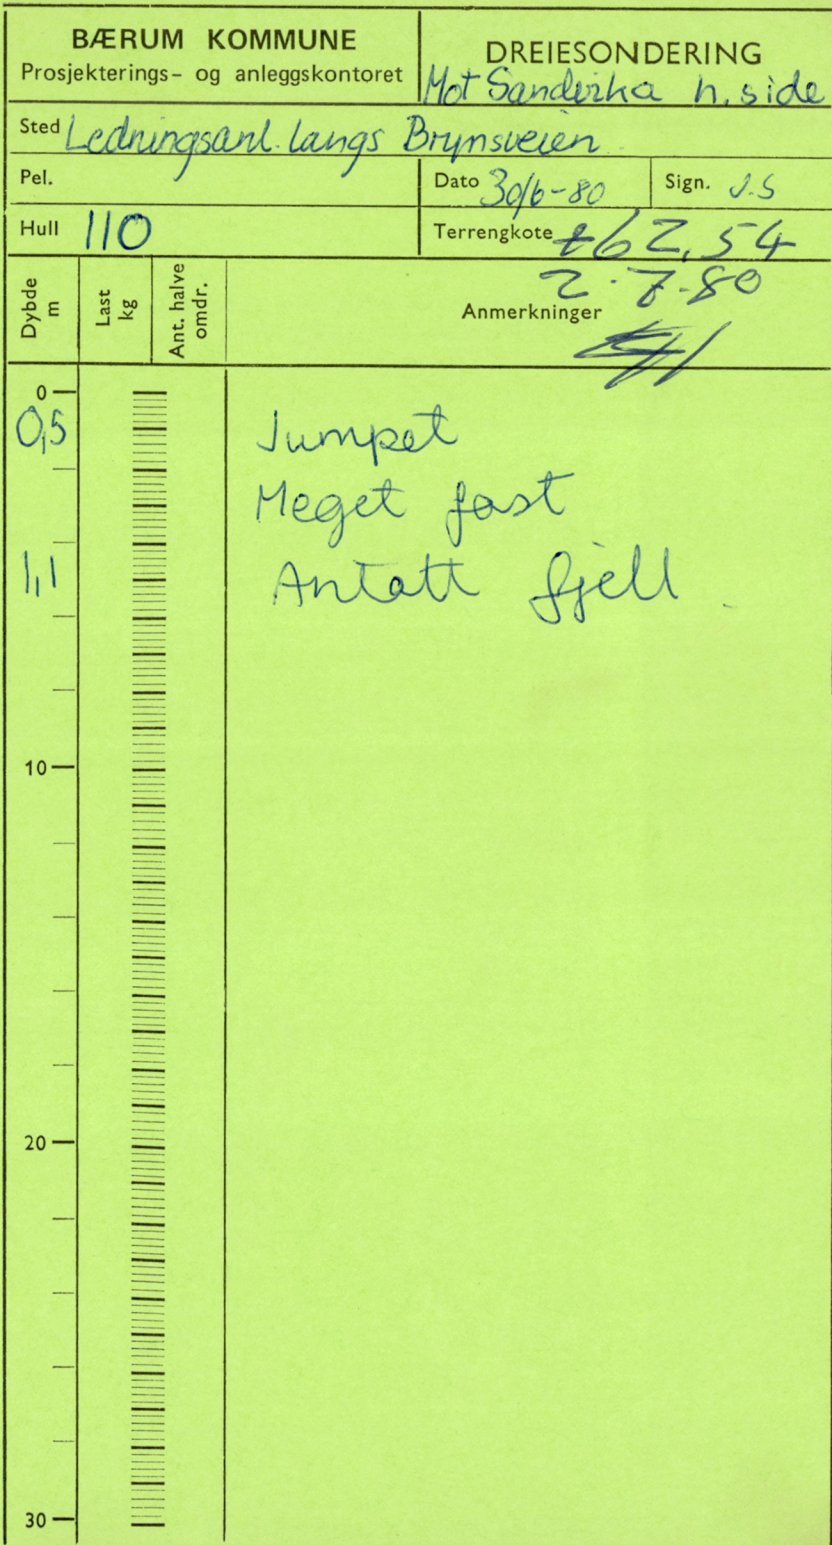 BÆRUM KOMMUNE
Prosjekterings- og anleggskontoret
DREIESONDERING
Mot Sandvika h. side
Sted Ledningsanl. langs Brynsveien
Pel.
Dato 30/6-80
Sign. J.S
Hull 110
Terrengkote +62,54
2.7.80
Dybde m
Last kg
Ant. halve omdr.
Anmerkninger
0
0,5 Jumpet
Meget fast
1,1 Antatt fjell
10
20
30